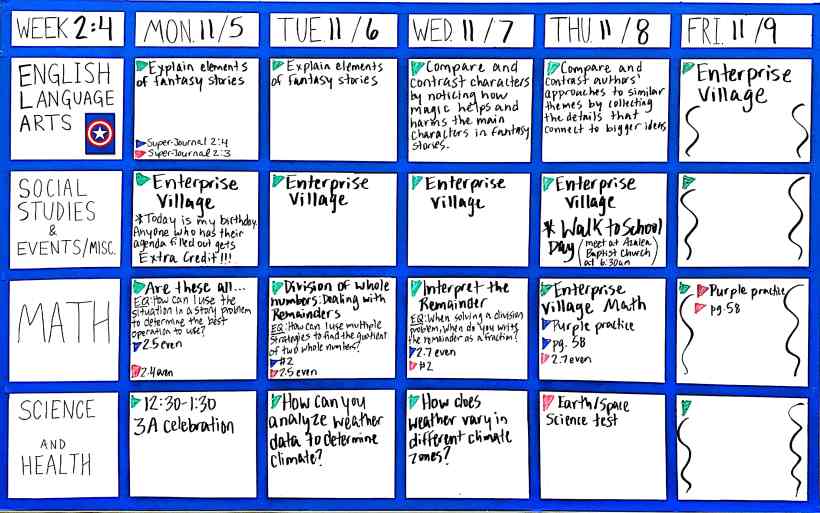 WEEK 2:4
MON. 11/5
TUE. 11/6
WED. 11/7
THU. 11/8
FRI. 11/9
ENGLISH
LANGUAGE
ARTS
Explain elements
of fantasy stories
Super-Journal 2:4
Super-Journal 2:3
Explain elements
of fantasy stories
Compare and
contrast characters
by noticing how
magic helps and
harms the main
characters in fantasy
stories.
Compare and
contrast authors'
approaches to similar
themes by collecting
the details that
connect to bigger ideas
Enterprise
Village
SOCIAL
STUDIES
&
EVENTS/MISC.
Enterprise
Village
*Today is my birthday.
Anyone who has their
agenda filled out gets
Extra Credit!!!
Enterprise
Village
Enterprise
Village
Enterprise
Village
* Walk to School
Day (meet at Azalea
Baptist Church
at 6:30am
MATH
Are these all...
EQ: How can I use the
situation in a story problem
to determine the best
operation to use?
2.5 even
2.4 even
Division of whole
numbers: Dealing with
Remainders
EQ: How can I use multiple
strategies to find the quotient
of two whole numbers?
#2
2.5 even
Interpret the
Remainder
EQ: When solving a division
problem, when do you write
the remainder as a fraction?
2.7 even
#2
Enterprise
Village Math
Purple practice
pg. 58
2.7 even
Purple practice
pg. 58
SCIENCE
AND
HEALTH
12:30-1:30
3A celebration
How can you
analyze weather
data to determine
climate?
How does
weather vary in
different climate
zones?
Earth/Space
Science test